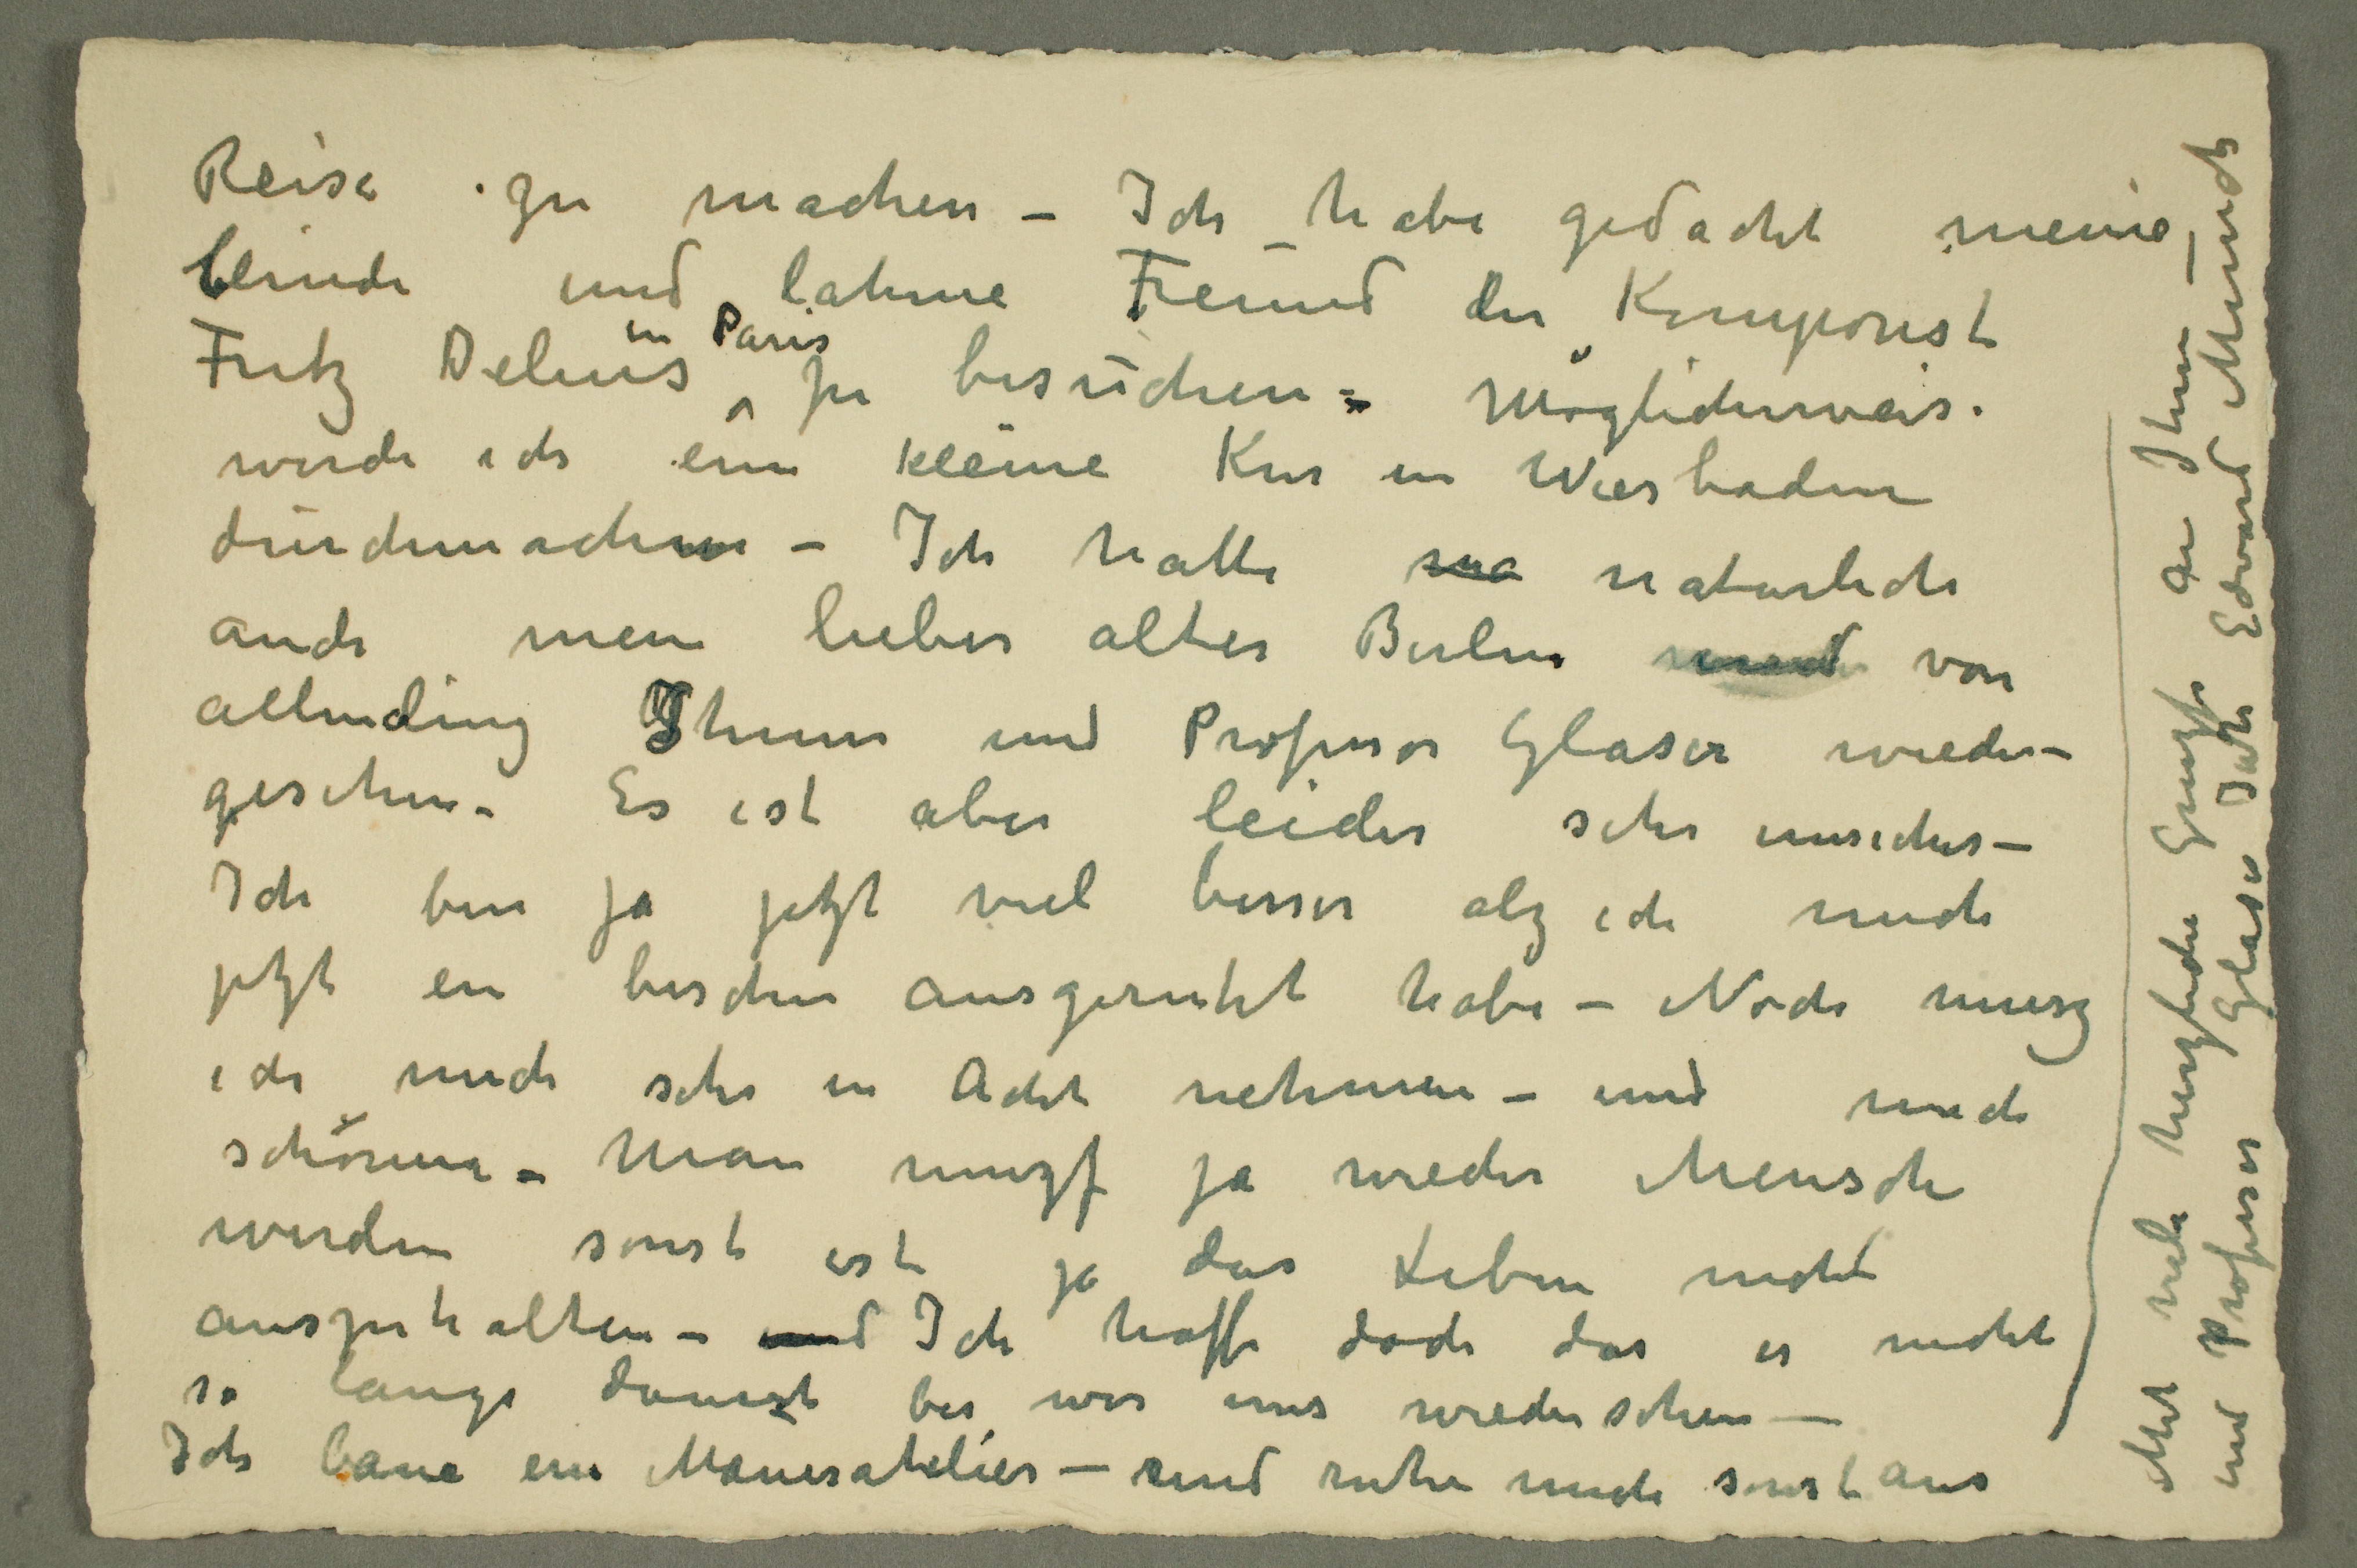 Reise zu machen – Ich habe gedacht meine
blinde und lahme Freund der Komponist
Fritz Delius in Paris zu besuchen – Möglicherweis.
werde ich ein kleine Kur in Wiesbaden
durchmachen – Ich hatte na naturlich
auch mein lieber altes Berlin und von
allerding Ihnen und Professor Glaser wieder-
gesehen – Es ist aber leider sehr unsicher –
Ich bin ja jetzt viel besser alz ich mich
jetzt ein bischen ausgeruht habe – Noch musz
ich mich sehr in Acht nehmen – und mich
schönen – Man muszf ja wieder Mensch
werden sonst ist ja das Leben nicht
auszuhalten – und Ich hoffe doch das es nicht
so lange dauert bis wir uns wiedersehen –
Ich baue ein Maueratelier – und ruhe mich sonst aus
Mit viele herzliche Gruszfe an Ihnen –
und Professor Glaser Ihr Edvard Munch